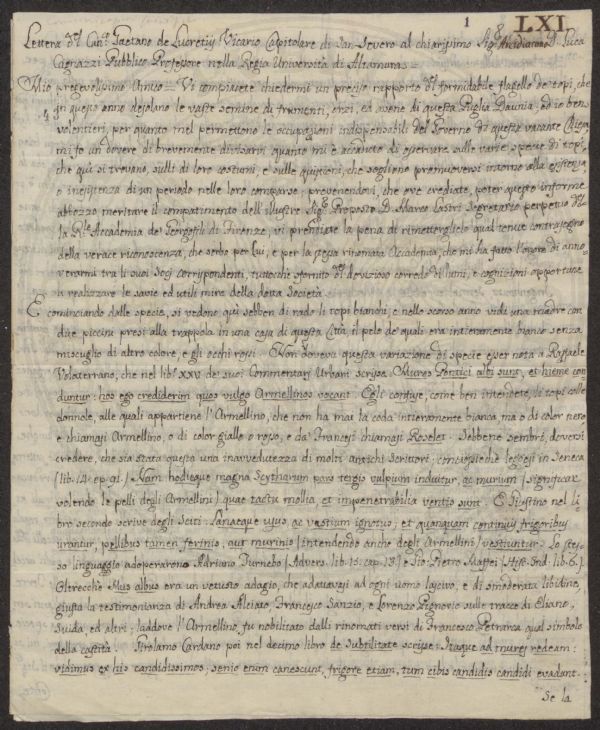 1 LXI
Lettera del Can.co Gaetano de Lucretiis Vicario Capitolare di San Severo al chiarissimo Sig.r Arcidiacono D. Luca
Cagnazzi Pubblico Professore nella Regia Università di Altamura =
Mio pregevolissimo Amico = Vi compiacete chiedermi un preciso rapporto del formidabile flagello de' topi, che
in questo anno desolano le vaste semine di frumenti, orzi, ed avene di questa Puglia Daunia, ed io ben
volentieri, per quanto mel permettono le occupazioni indispensabili del Governo di questa vacante Chiesa
mi fo un dovere di brevemente divisarvi quanto mi è accaduto di osservare sulle varie specie di topi,
che quì si trovano, sulli di loro costumi, e sulle quistioni, che sogliono promuoversi intorno alla esistenza
o inesistenza di un periodo nelle loro comparse, prevenendovi, che ove crediate, poter questo informe
abbozzo meritare il compatimento dell'illustre Sig.r Proposto D. Marco Lastri Segretario perpetuo della
la R.le Accademia de' Georgofili di Firenze, vi prendiate la pena di rimetterglielo qual tenue contrasegno
della verace riconoscenza, che serbo per Lui, e per la stessa rinomata Accademia, che mi ha fatto l'onore di anno-
verarmi tra li suoi Socj corrispondenti, tuttocchè sfornito del dovizioso corredo di lumi, e cognizioni opportune
a realizzare le savie ed utili mire della dotta Società
E cominciando dalle specie, si vedono quì sebben di rado li topi bianchi, e nello scorso anno vidi una madre con
due piccini presi alla trappola in una casa di questa Città il pelo de' quali era intieramente bianco senza
miscuglio di altro colore, e gli occhi rossi. Non doveva questa variazione di specie esser nota a Raffaele
Volaterrano, che nel lib. XXV de' suoi Commentarj Urbani scrisse. Mures Pontici albi sunt, et hieme con
duntur: hos ego crediderim quos vulgo Armellinos vocant. Egli confuse, come ben intendete, li topi colle
donnole, alle quali appartiene l'Armellino, che non ha mai la coda intieramente bianca, ma o di color nero
e chiamasi Armellino, o di color giallo o rosso, e da' Francesi chiamasi Roselet. Sebbene sembri, doversi
credere, che sia stata questa una inavvedutezza di molti antichi Scrittori, conciosiechè leggesi in Seneca
(lib. 14. ep. 91.) Nam hodieque magna Scytharum pars tergis vulpium induitur, ac murium (significar
volendo le pelli degli Armellini) quae tactu mollia, et impenetrabilia ventis sunt. E Giustino nel li-
bro secondo scrive degli Sciti: Lanaeque usus, ac vestium ignotus; et quamquam continuis frigoribus
urantur, pellibus tamen ferinis, aut murinis (intendendo anche degli Armellini) vestiuntur. Lo stes-
so linguaggio adoperarono Adriano Turnebo (Advers. lib. 15. cap. 13.) e Gio: Pietro Maffei (Hist. Ind. lib. 6.).
Oltrecchè Mus albus era un vetusto adagio, che adattavasi ad ogni uomo lascivo, e di smoderata libidine,
giusta la testimonianza di Andrea Alciato, Francesco Sanzio, e Lorenzo Pignorio sulle tracce di Eliano,
Suida, ed altri; laddove l'Armellino fu nobilitato dalli rinomati versi di Francesco Petrarca qual simbolo
della castità. Girolamo Cardano poi nel decimo libro de Subtilitate scrisse: Itaque ad mures redeam:
vidimus ex his candidissimos, senio enim canescunt, frigore etiam, tum cibis candidis candidi evadunt.
Se la